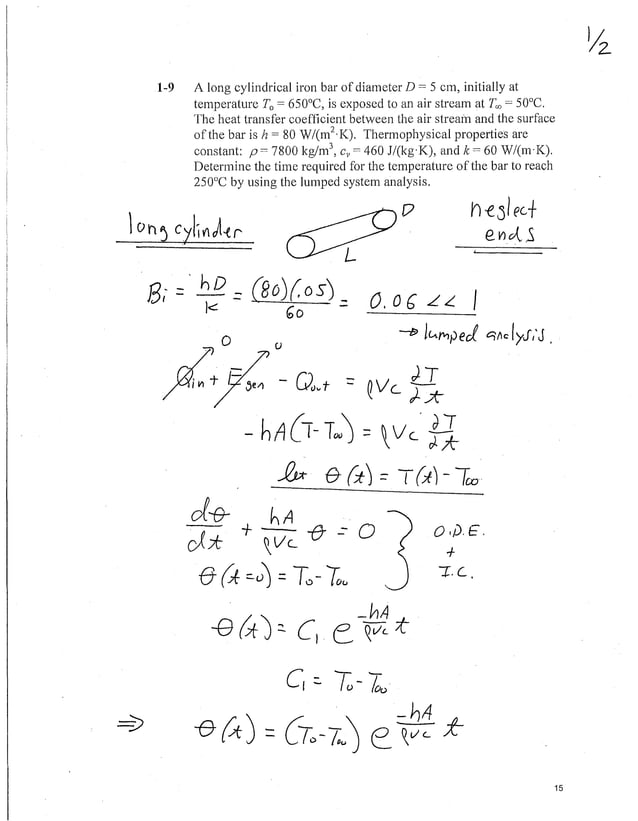 1/2
1-9 A long cylindrical iron bar of diameter D = 5 cm, initially at
temperature T₀ = 650°C, is exposed to an air stream at T∞ = 50°C.
The heat transfer coefficient between the air stream and the surface
of the bar is h = 80 W/(m²·K). Thermophysical properties are
constant: ρ = 7800 kg/m³, cᵥ = 460 J/(kg·K), and k = 60 W/(m·K).
Determine the time required for the temperature of the bar to reach
250°C by using the lumped system analysis.
long cylinder
D
L
neglect
ends
Bi = hD/k = (80)(.05)/60 = 0.06 << 1
→ lumped analysis.
0 0
Qin + Egen - Qout = ρVc ∂T/∂t
-hA(T-T∞) = ρVc ∂T/∂t
let θ(t) = T(t) - T∞
dθ/dt + hA/ρVc θ = 0
θ(t=0) = T₀-T∞
} O.D.E.
+
I.C.
θ(t) = C₁ e^(-hA/ρVc t)
C₁ = T₀-T∞
⇒ θ(t) = (T₀-T∞) e^(-hA/ρVc t)
15